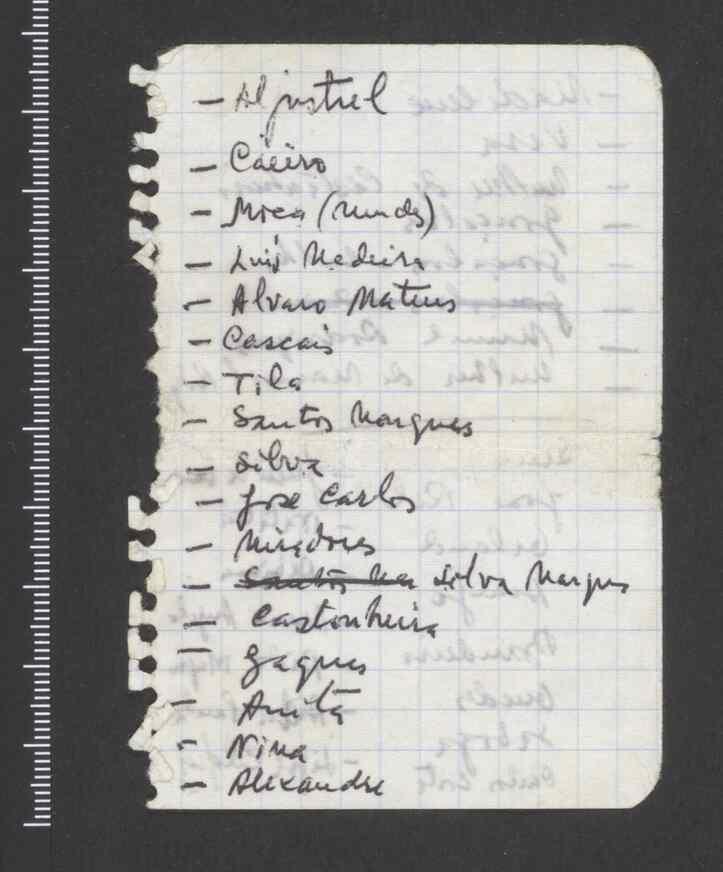 - Aljustrel
- Caeiro
- Mica (Nunes)
- Luis Madeira
- Alvaro Mateus
- Cascais
- Tila
- Santos Marques
- Silva
- José Carlos
- Miradores
- Santos Mar Silva Marques
- Castanheira
- Gagues
- Anita
- Nina
- Alexandre